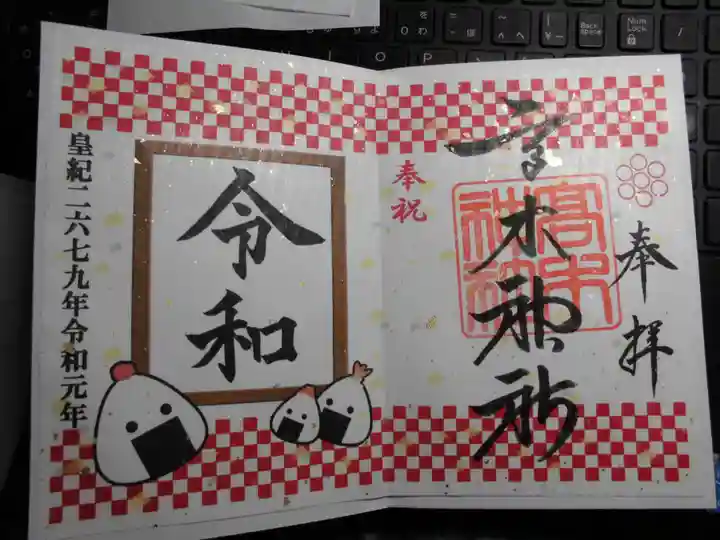 奉拝
高木神社
高木
神社
奉祝
令和
皇紀二六七九年令和元年
Back
Space
Num
O
P